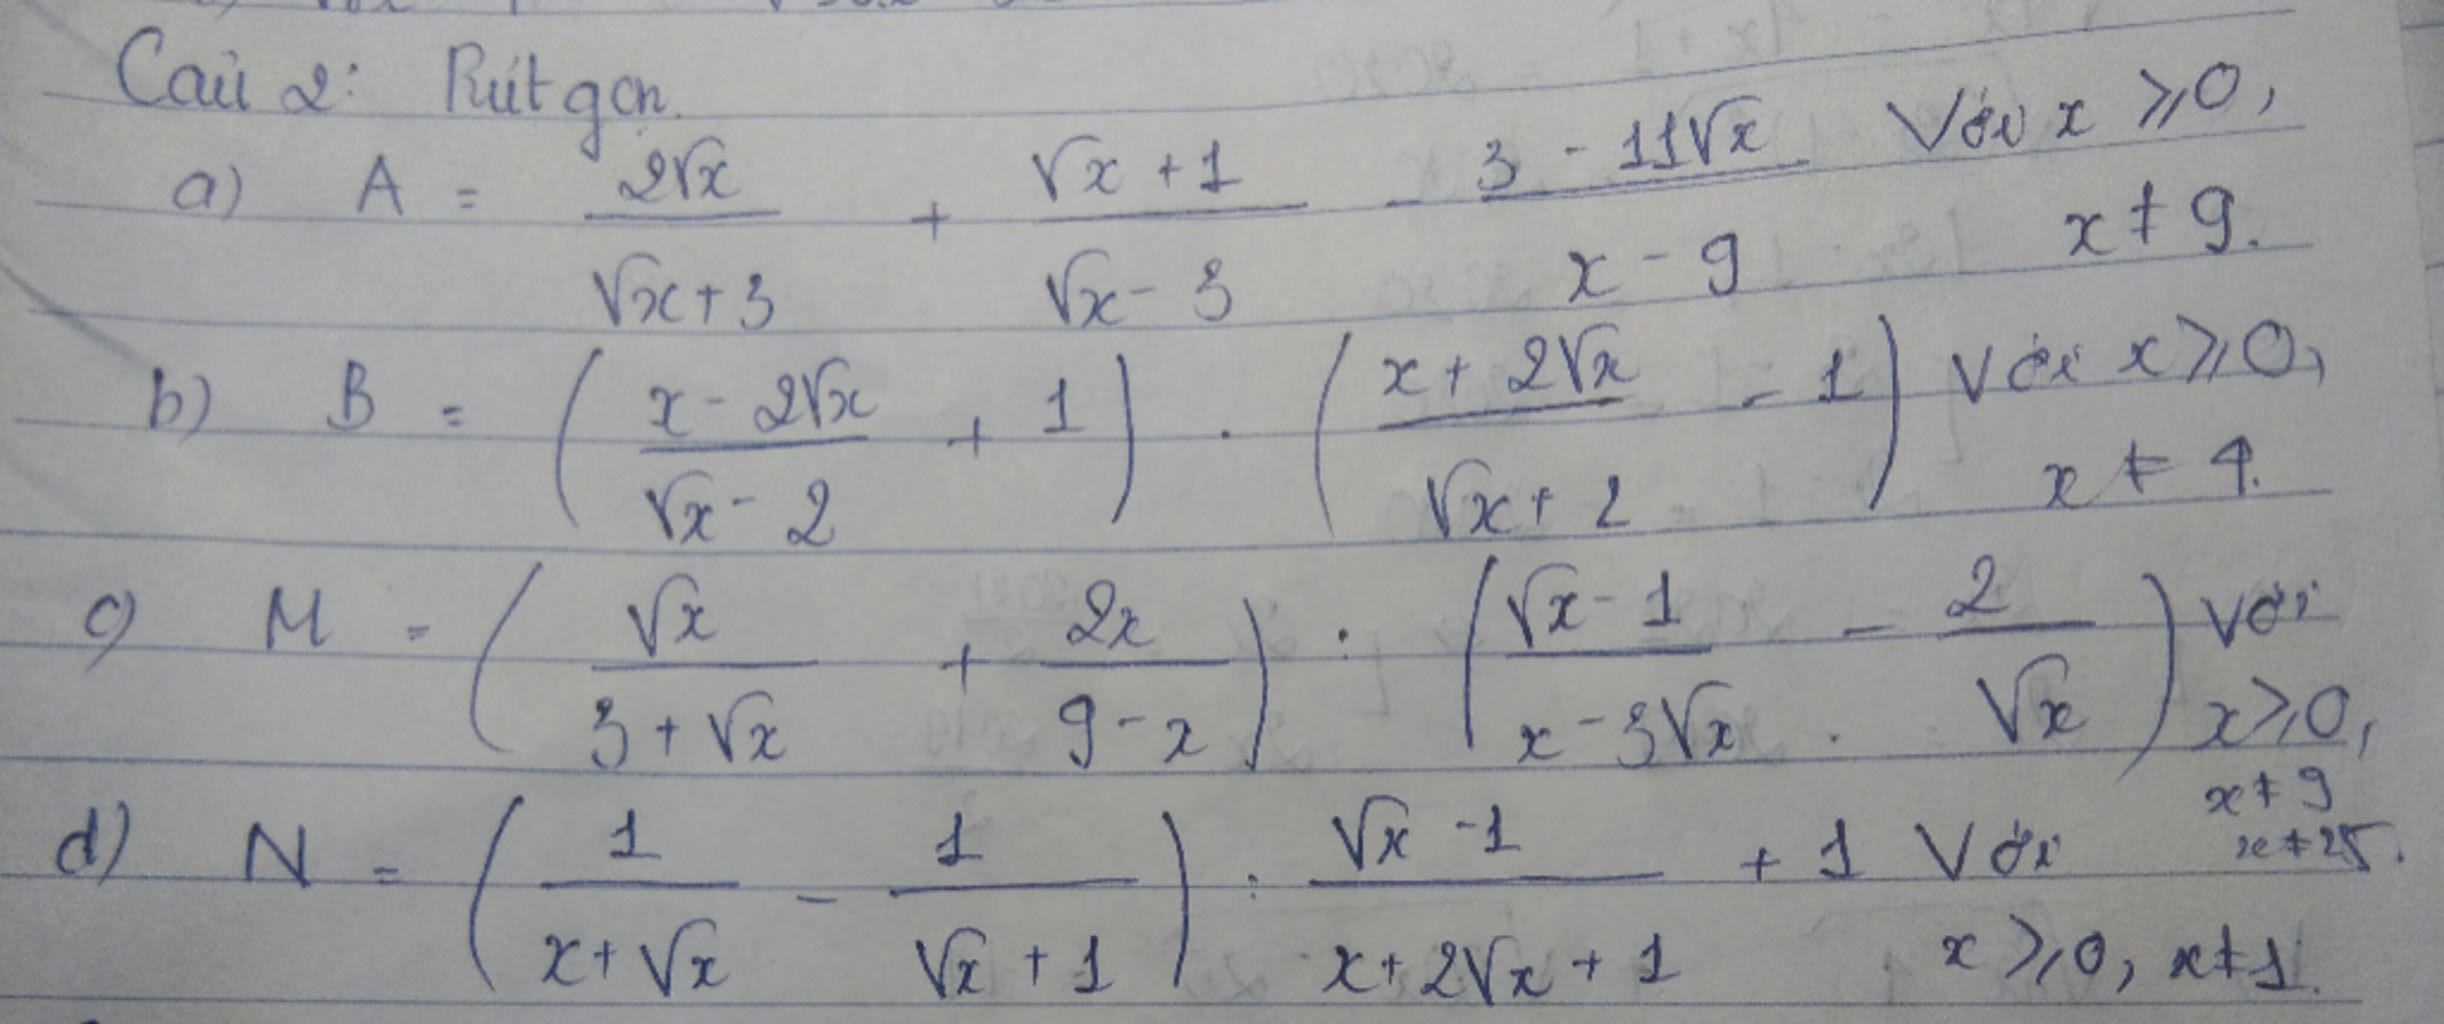 Câu 2: Rút gọn.
a) A = 2√x / (√x + 3) + (√x + 1) / (√x - 3) - (3 - 11√x) / (x - 9) Với x ⩾ 0, x ≠ 9.
b) B = ( (x - 2√x) / (√x - 2) + 1 ) . ( (x + 2√x) / (√x + 2) - 1 ) với x ⩾ 0, x ≠ 4.
c) M = ( √x / (3 + √x) + 2x / (9 - x) ) : ( (√x - 1) / (x - 3√x) - 2 / √x ) với x ⩾ 0, x ≠ 9 x ≠ 25.
d) N = ( 1 / (x + √x) - 1 / (√x + 1) ) : (√x - 1) / (x + 2√x + 1) + 1 Với x ⩾ 0, x ≠ 1.